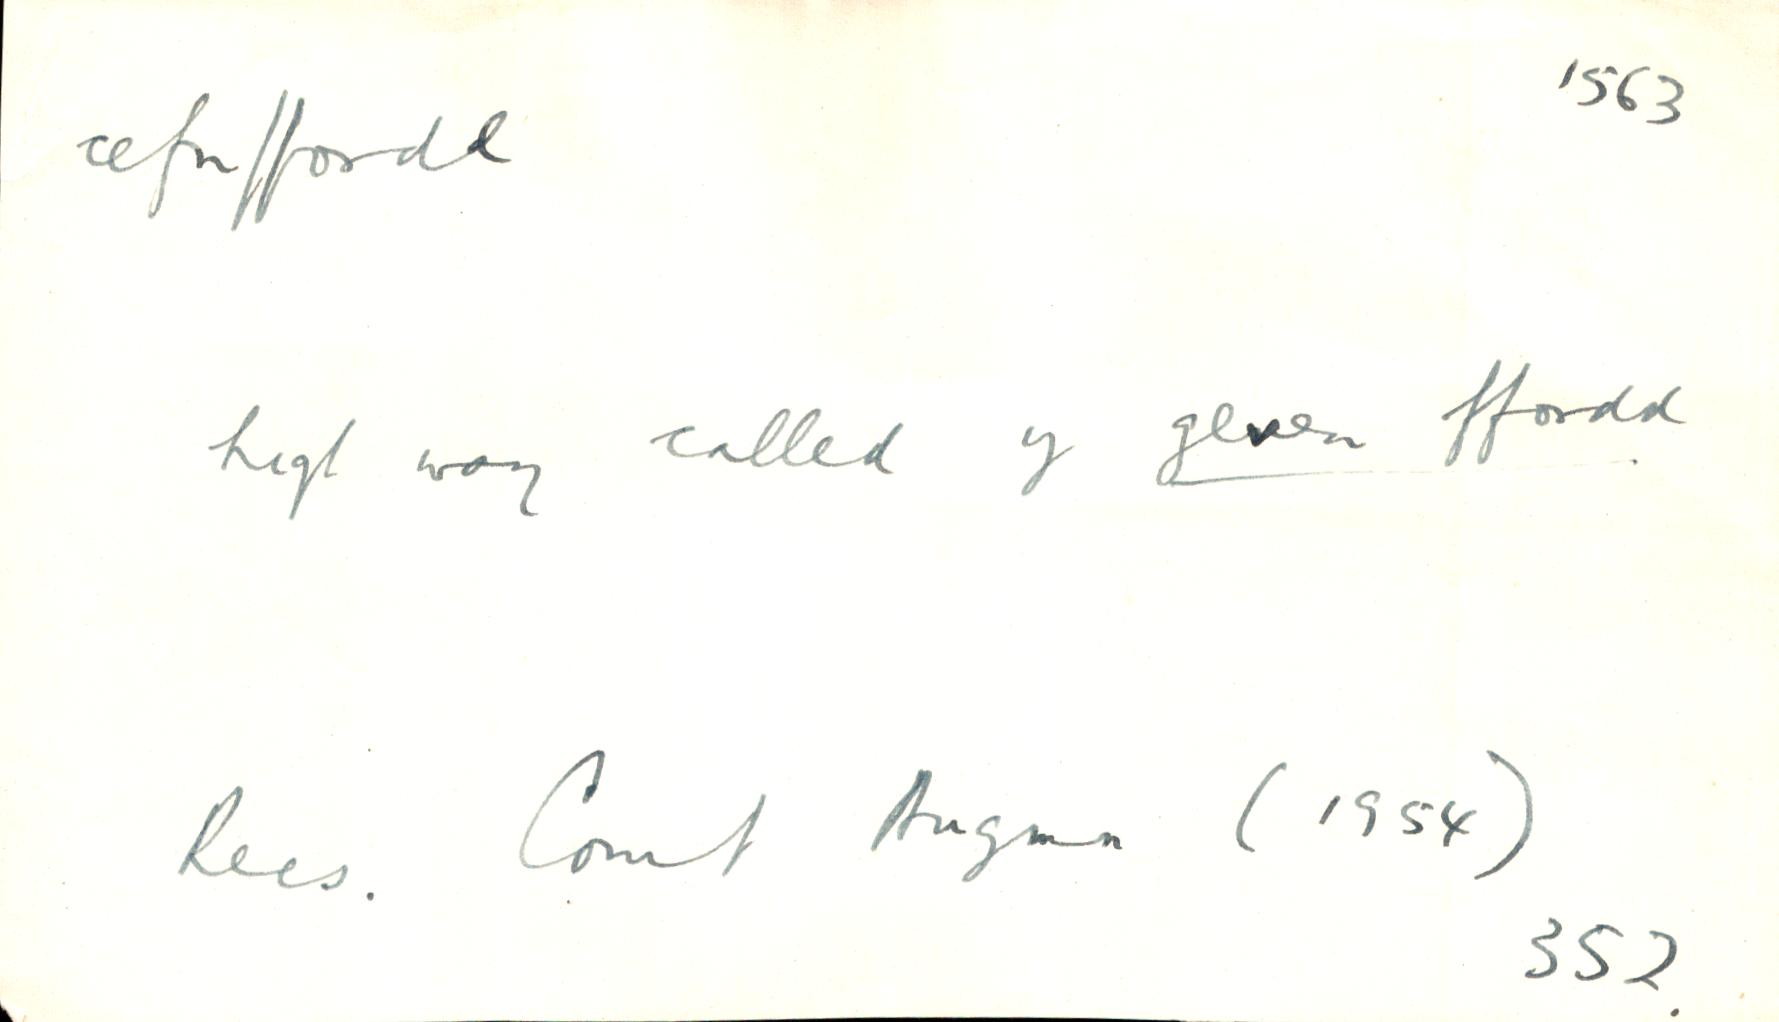 1563
cefnffordd
high way called y geven ffordd.
Rees. Court Augmn (1954)
352.